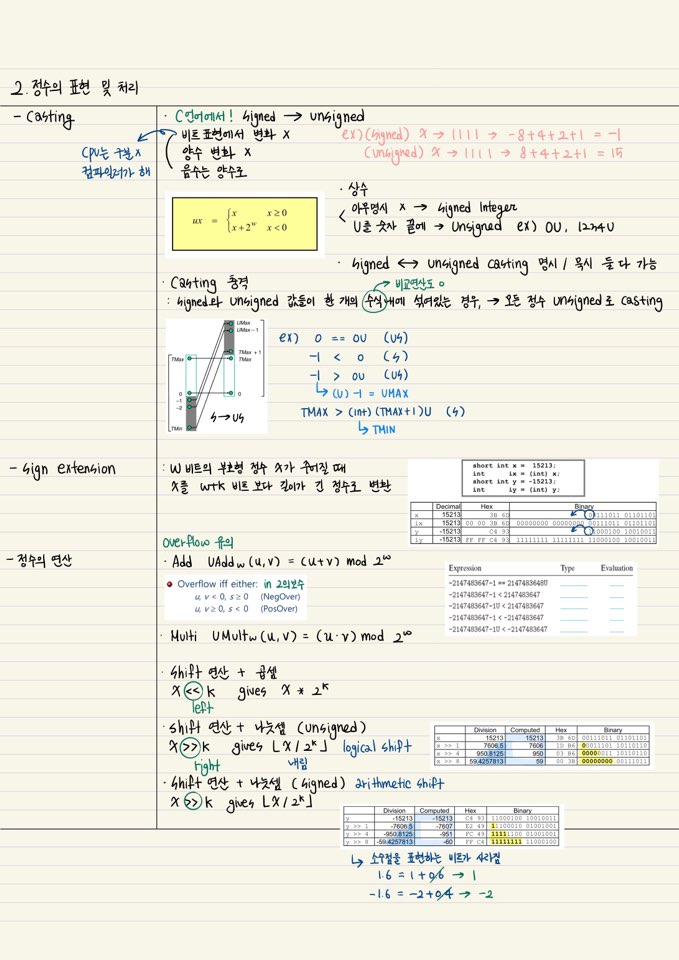 2. 정수의 표현 및 처리
- Casting
· C언어에서! Signed → Unsigned
비트표현에서 변화 X
양수 변화 X
음수는 양수로
CPU는 구분 X
컴파일러가 해
ex) (signed) x → 1111 → -8+4+2+1 = -1
(unsigned) x → 1111 → 8+4+2+1 = 15
ux = { x x ≥ 0
x + 2^w x < 0
· 상수
아무명시 X → Signed Integer
U를 숫자 끝에 → Unsigned ex) 0U, 1234U
· Signed ↔ Unsigned Casting 명시 / 묵시 둘 다 가능
· Casting 충격
비교연산도 o
: Signed와 Unsigned 값들이 한 개의 수식내에 섞여있는 경우, → 모든 정수 Unsigned로 Casting
UMax
UMax – 1
TMax + 1
TMax
TMax
0
0
–1
–2
TMin
S → US
ex) 0 == 0U (US)
-1 < 0 (S)
-1 > 0U (US)
↳ (U) -1 = UMAX
TMAX > (int) (TMAX+1)U (S)
↳ TMIN
- Sign extension
: W 비트의 부호형 정수 X가 주어질 때
X를 w+k 비트 보다 길이가 긴 정수로 변환
short int x = 15213;
int ix = (int) x;
short int y = -15213;
int iy = (int) y;
Decimal Hex Binary
x 15213 3B 6D 00111011 01101101
ix 15213 00 00 3B 6D 00000000 00000000 00111011 01101101
y -15213 C4 93 11000100 10010011
iy -15213 FF FF C4 93 11111111 11111111 11000100 10010011
- 정수의 연산
Overflow 유의
· Add UAddw (u, v) = (u+v) mod 2^w
Overflow iff either: in 2의보수
u, v < 0, s ≥ 0 (NegOver)
u, v ≥ 0, s < 0 (PosOver)
Expression Type Evaluation
-2147483647-1 == 2147483648U
-2147483647-1 < 2147483647
-2147483647-1U < 2147483647
-2147483647-1 < -2147483647
-2147483647-1U < -2147483647
· Multi UMultw (u, v) = (u · v) mod 2^w
· Shift 연산 + 곱셈
X << k gives X * 2^k
left
· Shift 연산 + 나눗셈 (unsigned)
X >> k gives ⌊X / 2^k⌋ logical shift
right 내림
Division Computed Hex Binary
x 15213 15213 3B 6D 00111011 01101101
x >> 1 7606.5 7606 1D B6 00011101 10110110
x >> 4 950.8125 950 03 B6 00000011 10110110
x >> 8 59.4257813 59 00 3B 00000000 00111011
· Shift 연산 + 나눗셈 (signed) arithmetic shift
X >> k gives ⌊X / 2^k⌋
Division Computed Hex Binary
y -15213 -15213 C4 93 11000100 10010011
y >> 1 -7606.5 -7607 E2 49 11100010 01001001
y >> 4 -950.8125 -951 FC 49 11111100 01001001
y >> 8 -59.4257813 -60 FF C4 11111111 11000100
↳ 소수점을 표현하는 비트가 사라짐
1.6 = 1 + 0.6 → 1
-1.6 = -2 + 0.4 → -2